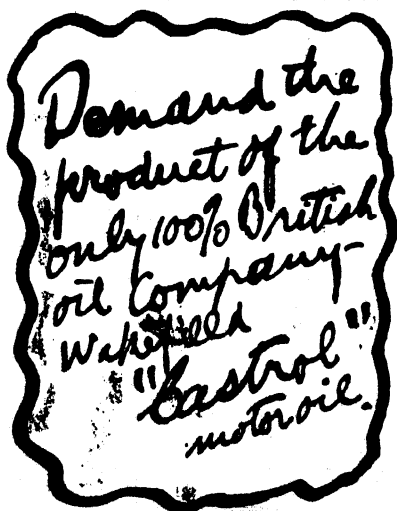 Demand the
product of the
only 100% British
oil Company-
Wakefield
"Castrol"
motor oil.